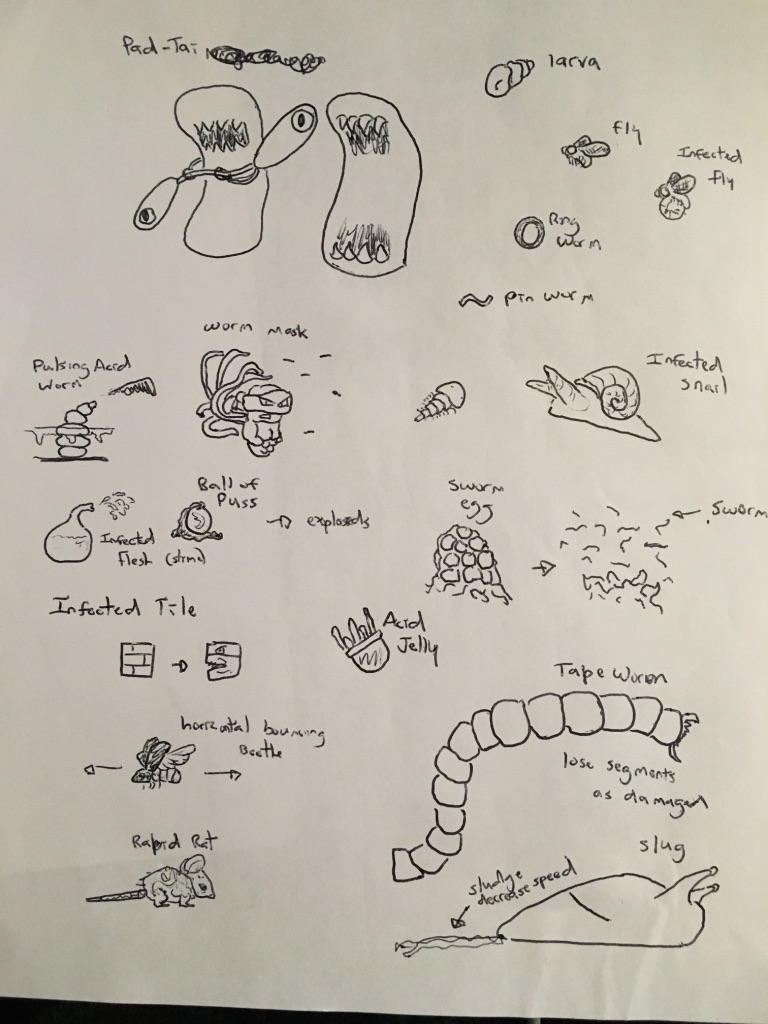 Pad-Tai
larva
fly
Infected
fly
Ring
worm
pin worm
worm mask
Pulsing Acid
worm
Infected
Snail
Ball of
Puss
explodeds
Infected
flesh
Sworm
egg
Sworm
Infected Tile
Acid
Jelly
Tape Worm
lose segments
as damaged
horizontal bouncing
Beetle
Rapid Rat
slug
sludge
decrease speed